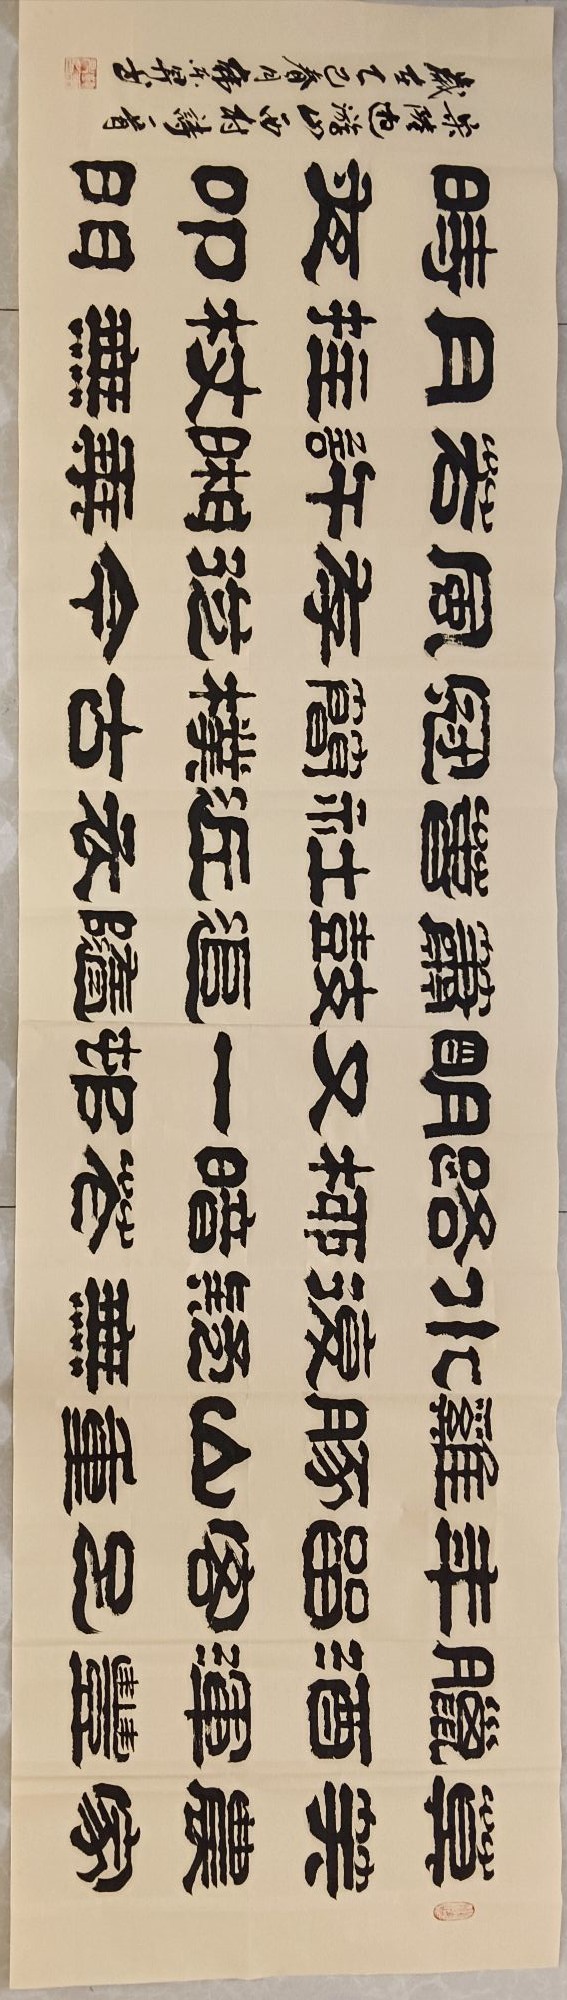 莫笑農家
臘酒渾豐
年留客足
雞豚山重
水復疑無
路柳暗花
明又一村
簫鼓追隨
春社近衣
冠簡樸古
風存從今
若許閒乘
月拄杖無
時夜叩門
宋陸遊游山西村詩一首
歲在乙巳春月